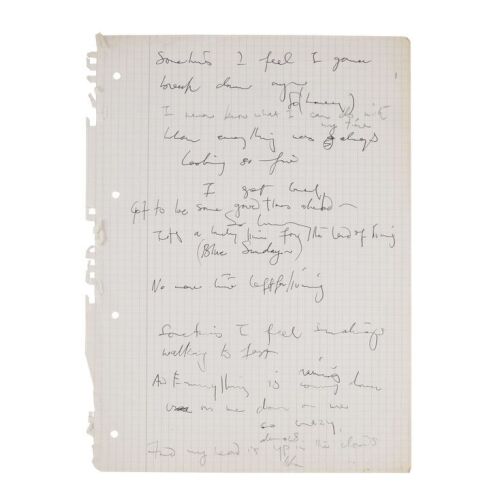 Sometimes I feel I gonna
break down again
So (Lonely)
I never know what I can do with
my time
When everything was always
looking so fine
I get lonely,
Got to be some good times ahead
So lonely
Its a lonely time for the land of living
(Blue Sunday)
No more time left for living
Sometimes I feel I'm always
walking to fast
raining
As Everything is coming down
on me down on me
so crazy,
And my head is up in the clouds